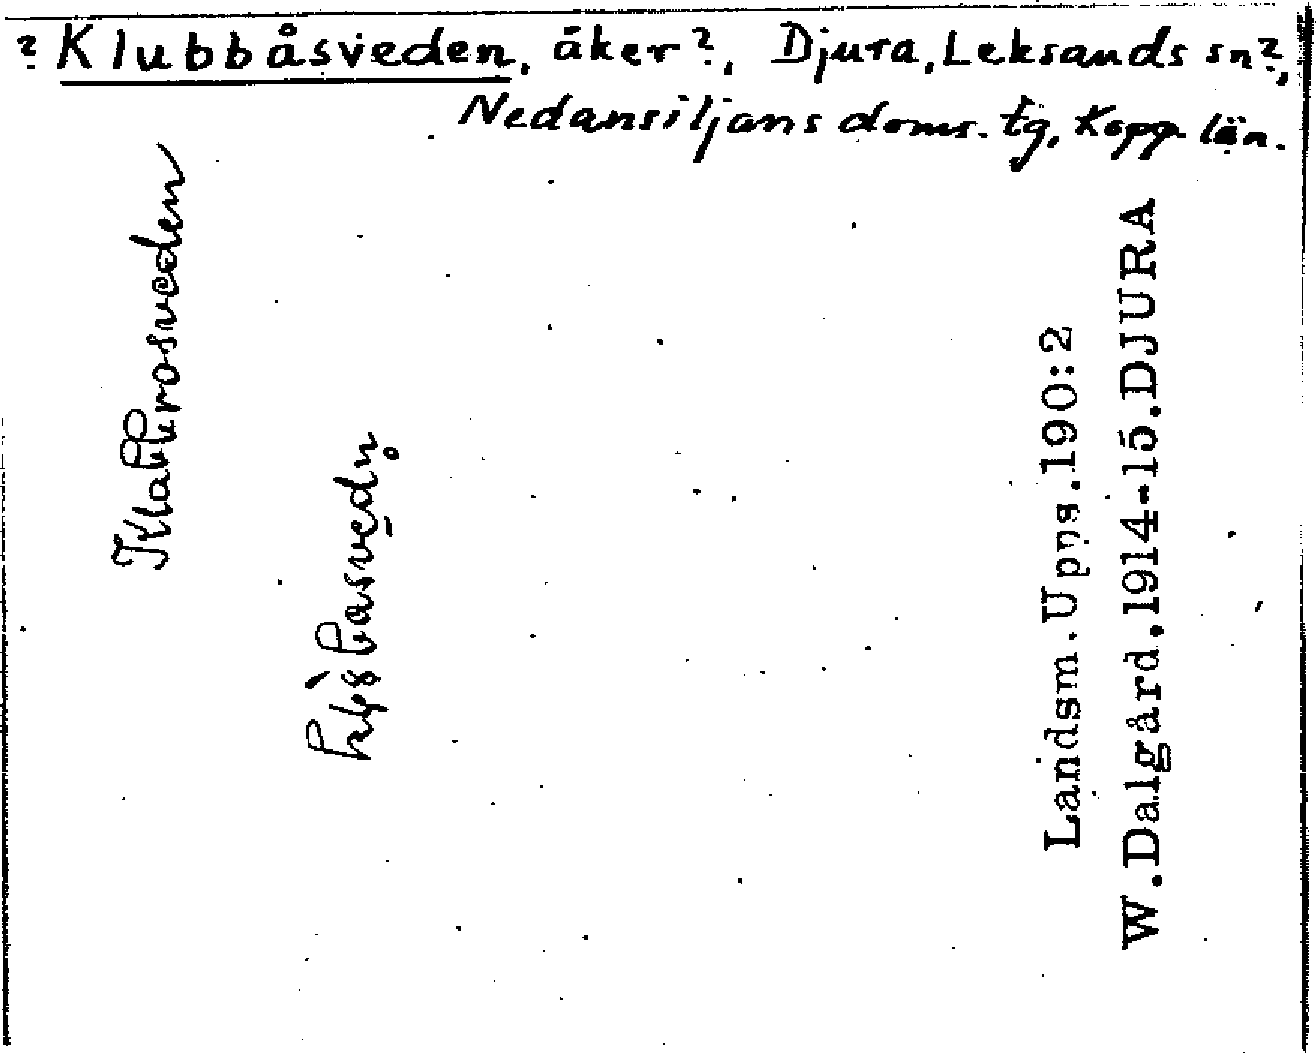 ? Klubbåsveden, åker?, Djura, Leksands sn?,
Nedansiljans doms. tg, Kopp. län.
Klabbrosveden
Landsm. Upps. 190:2
W. Dalgård. 1914-15. DJURA